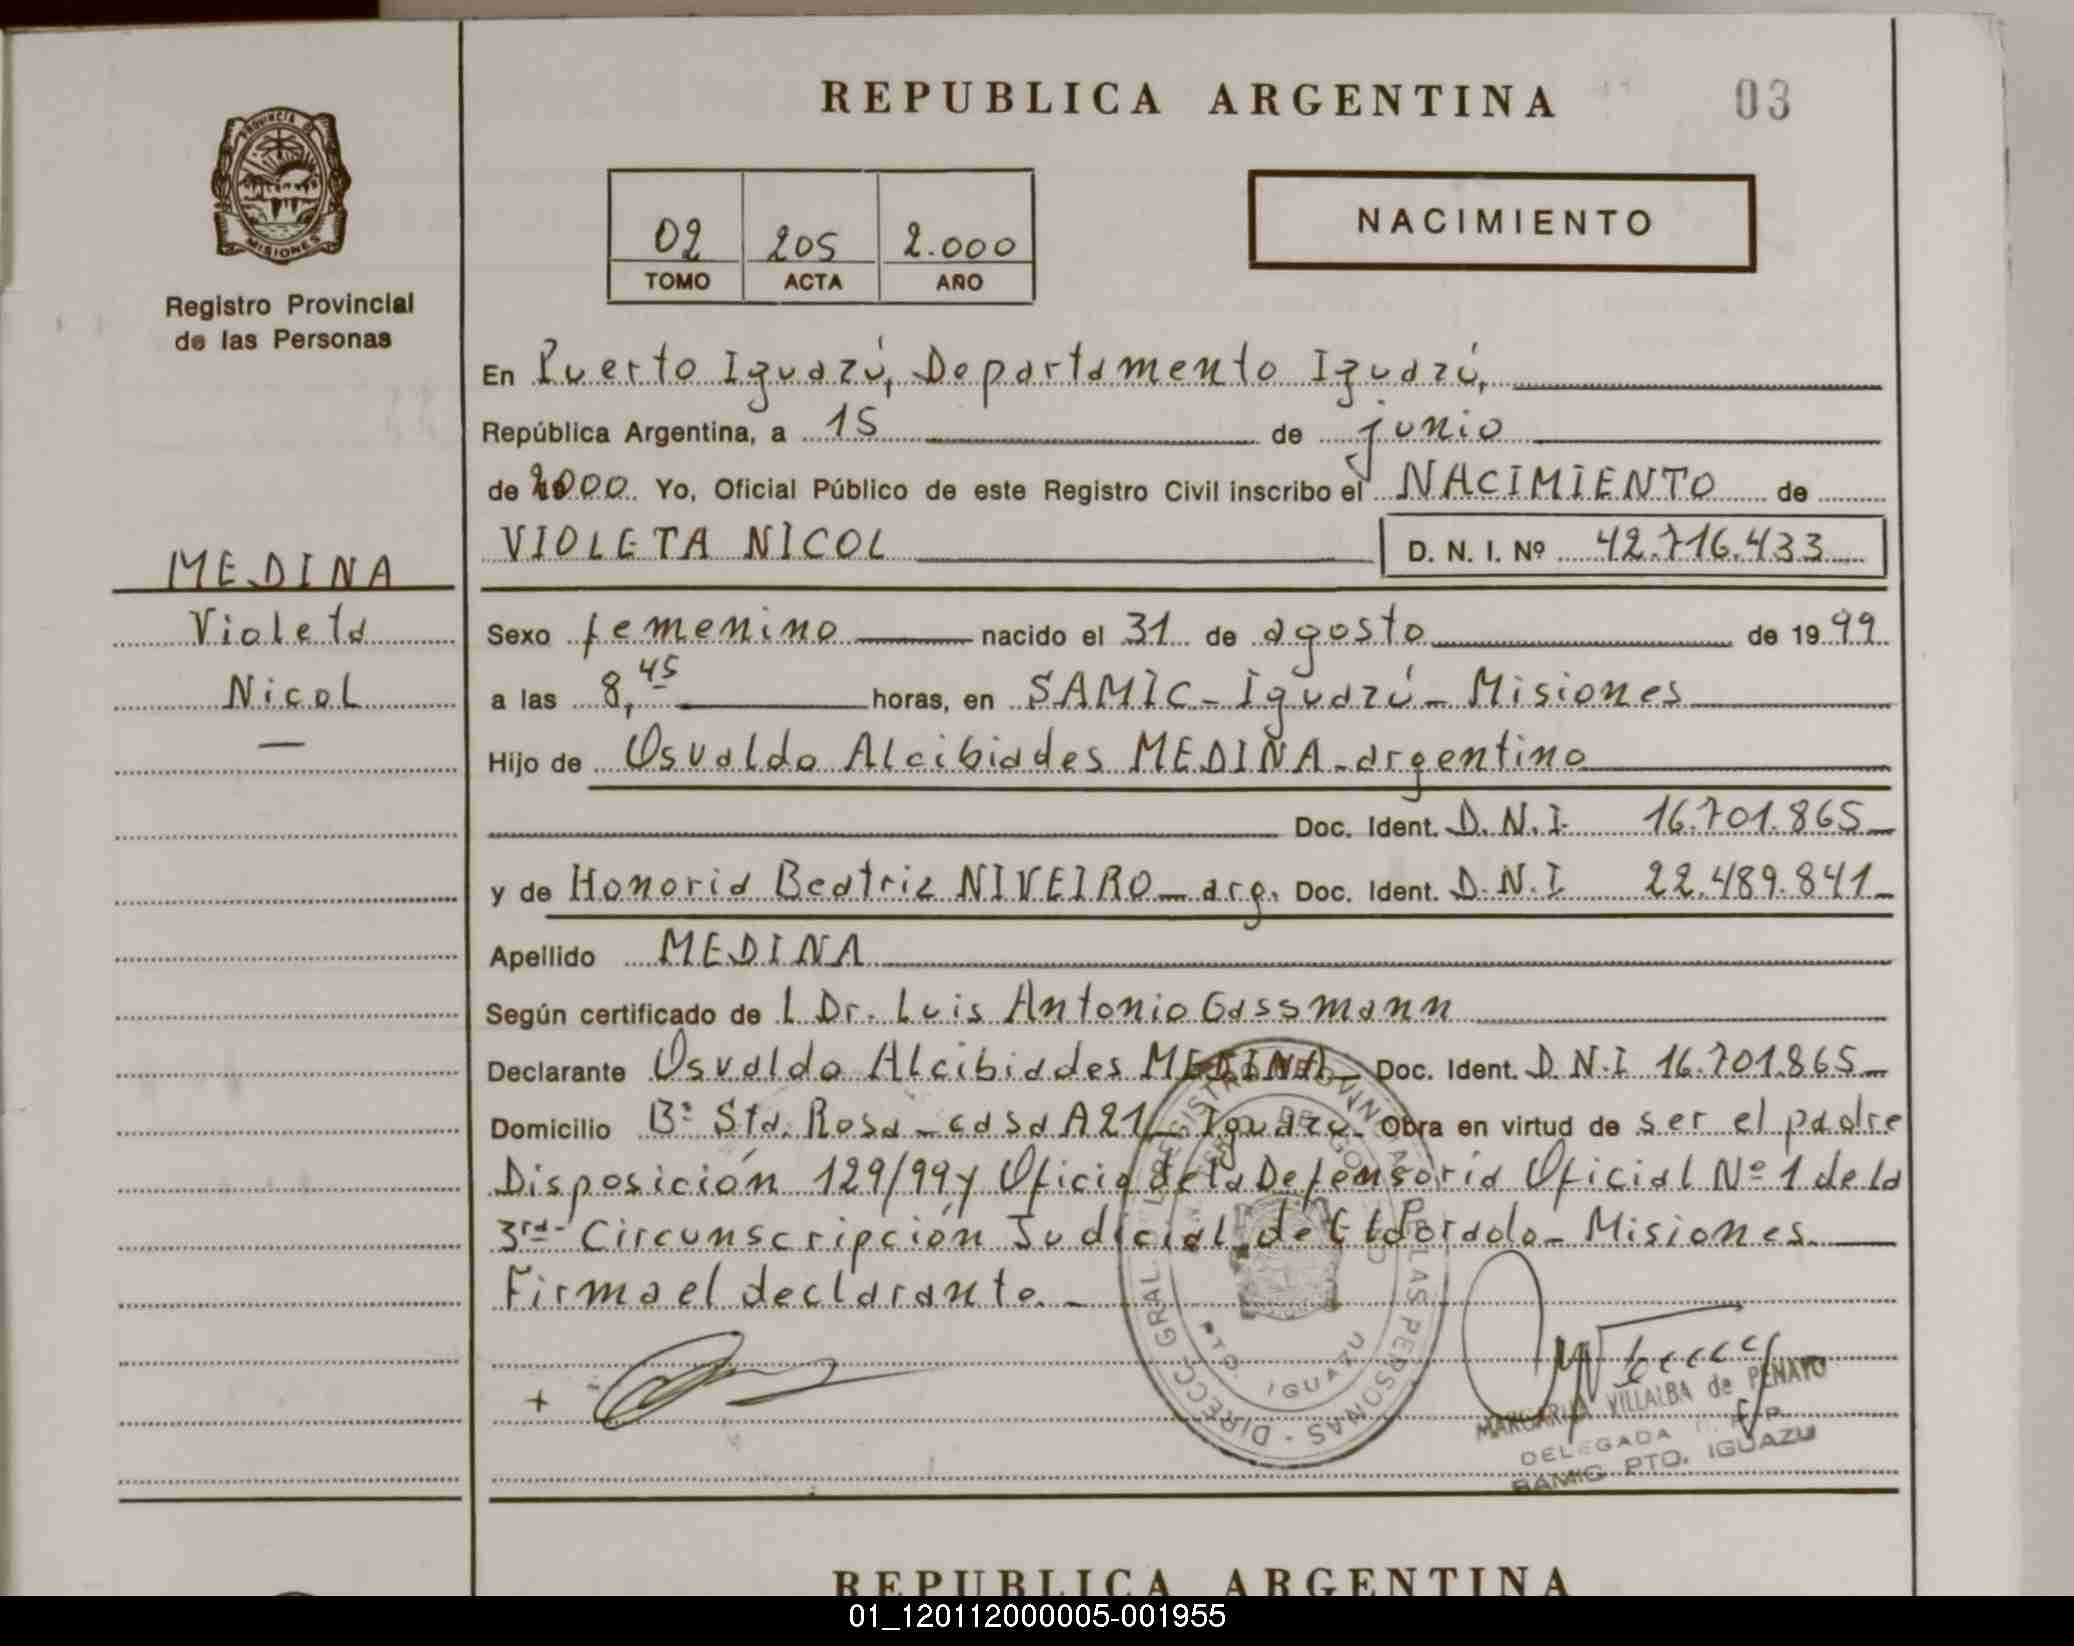 REPUBLICA ARGENTINA
03
PROVINCIA DE
MISIONES
Registro Provincial
de las Personas
02 205 2.000
TOMO ACTA AÑO
NACIMIENTO
En Puerto Iguazú, Departamento Iguazú,
República Argentina, a 15 de junio
de 2000 Yo, Oficial Público de este Registro Civil inscribo el NACIMIENTO de
VIOLETA NICOL D. N. I. Nº 42.716.433
MEDINA
Violeta
Nicol
Sexo femenino nacido el 31 de agosto de 19 99
a las 8,45 horas, en SAMIC - Iguazú - Misiones
Hijo de Osvaldo Alcibiades MEDINA - argentino
Doc. Ident. D.N.I. 16.701.865
y de Honoria Beatriz NIVEIRO - arg. Doc. Ident. D.N.I 22.489.841
Apellido MEDINA
Según certificado de l Dr. Luis Antonio Gassmann
Declarante Osvaldo Alcibiades MEDINA - Doc. Ident. D.N.I 16.701.865
Domicilio Bº Sta. Rosa - casa A21 - Iguazú - Obra en virtud de ser el padre
Disposición 129/99 y Oficio de la Defensoría Oficial Nº 1 de la
3ra. Circunscripción Judicial de Eldorado - Misiones.
Firma el declarante. -
+
DIRECC GRAL. REGISTRO PROVINCIAL DE LAS PERSONAS -
PTO. IGUAZU
MARGARITA VILLALBA de PENAYO
DELEGADA
SAMIC PTO. IGUAZU
REPUBLICA ARGENTINA
01_120112000005-001955